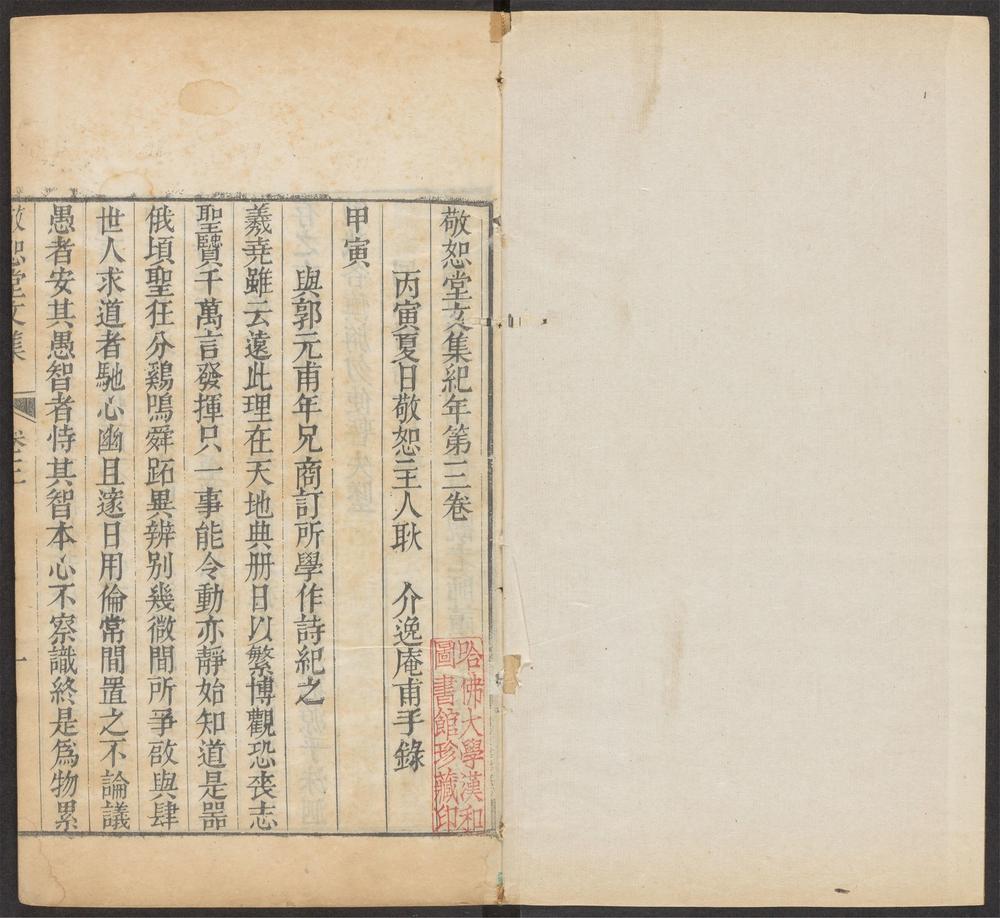 敬恕堂文集紀年第三卷
丙寅夏日敬恕主人耿　介逸庵甫手錄
甲寅
與郭元甫年兄商訂所學作詩紀之
羲尭雖云遠此理在天地典册日以繁博觀恐喪志
聖賢千萬言發揮只一事能令動亦靜始知道是器
俄頃聖狂分鷄鳴舜跖異辨别幾微間所爭敬與肆
世人求道者馳心幽且邃日用倫常間置之不論議
愚者安其愚智者恃其智本心不察識終是爲物累
敬恕堂文集
卷三
一
哈佛大學漢和
圖書館珍藏印